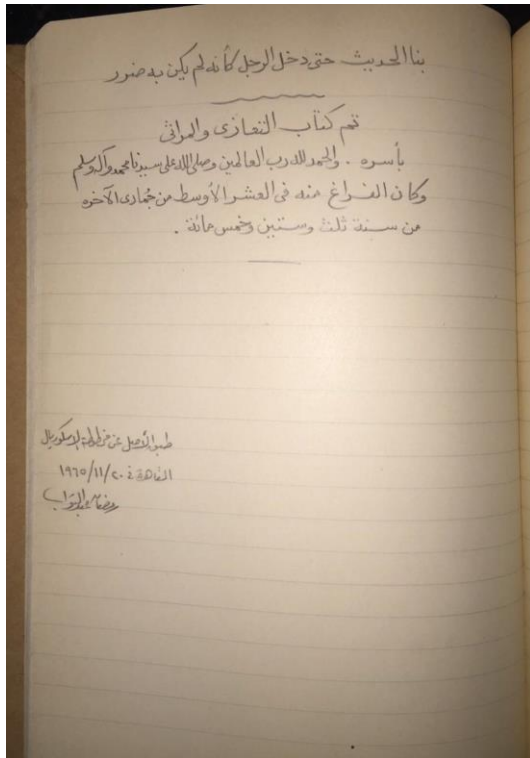 بنا الحديث حتى دخل الرجل كأنه لم يكن به ضرر
تم كتاب التعازى والمراثى
بأسره . والحمد لله رب العالمين وصلى الله على سيدنا محمد وآله وسلم
وكان الفراغ منه فى العشر الأوسط من جُمادى الآخره
من سنة ثلث وستين وخمس مائة .
طبق الأصل عن مخطوطة الإسكوريال
القاهرة فى ٢٠/١١/١٩٦٥
رمضان عبد التواب